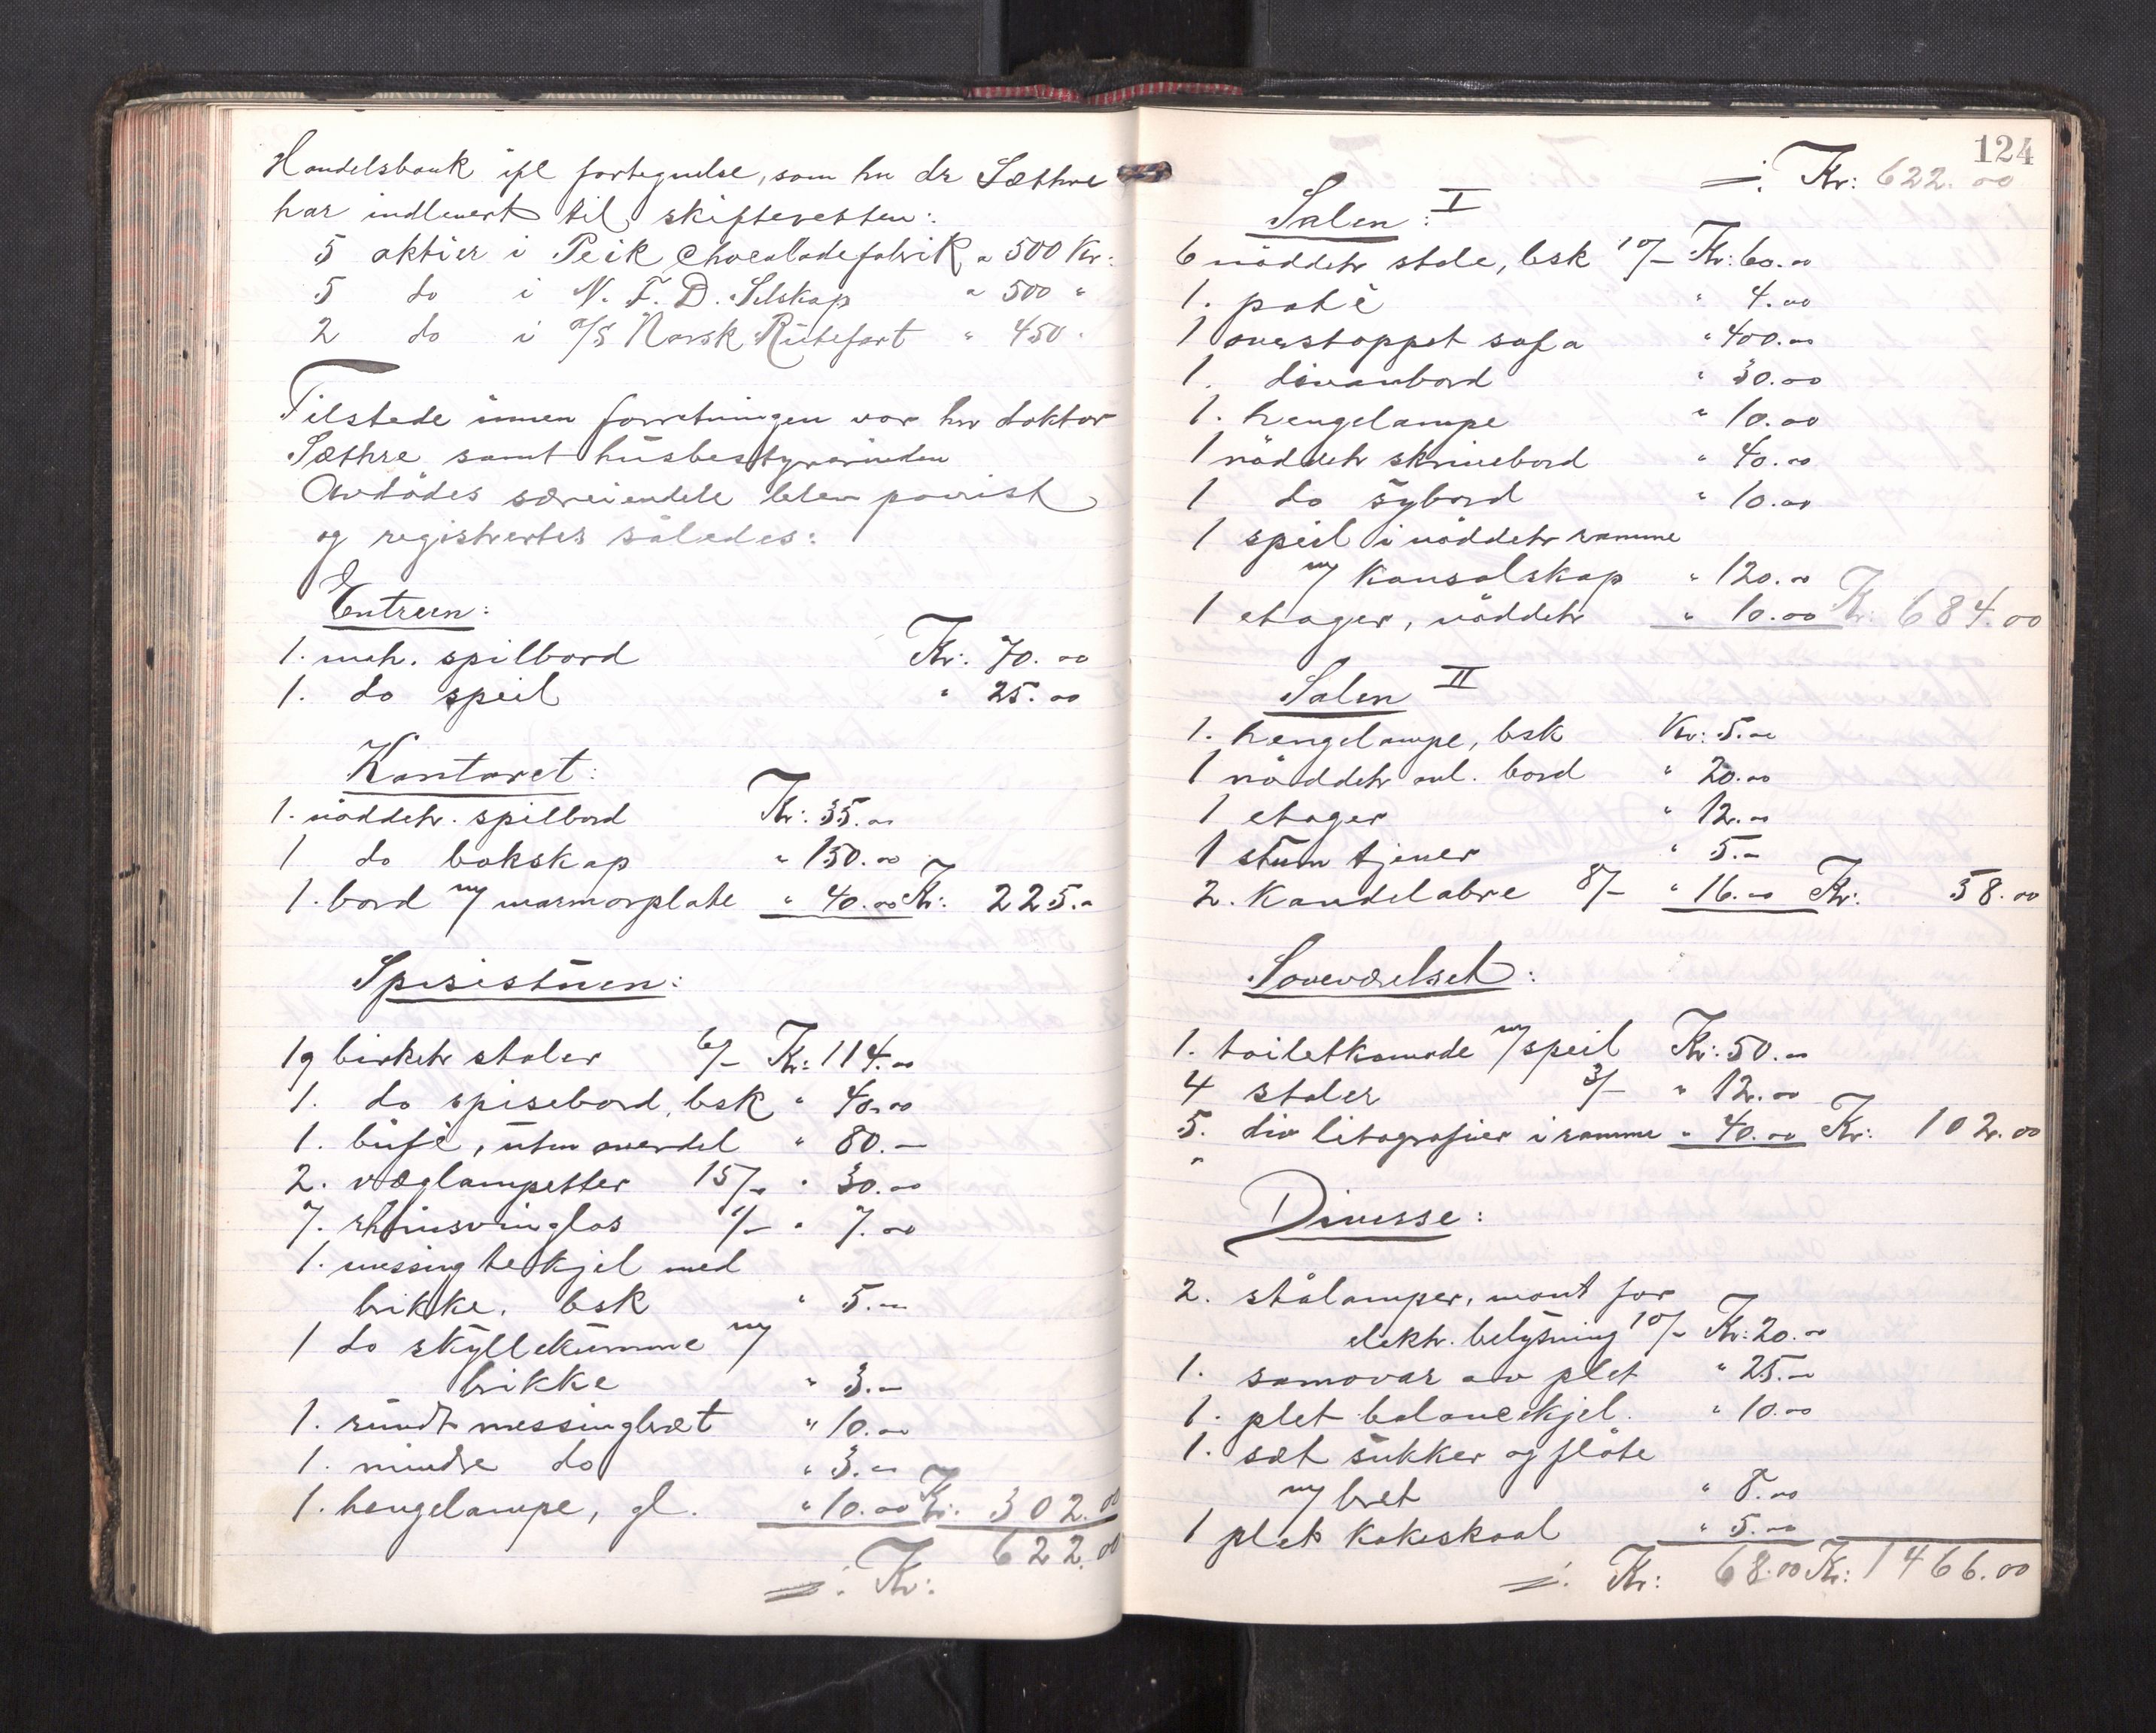 Handelsbank ifl fortegnelse, som hr dr Sæthre
har indlevert til skifteretten:
5 aktier i Peik Chocoladefabrik a 500 Kr:
5 do i N. F. D. Selskap " 500 "
2 do i A/S Norsk Rutefart " 450 "
Tilstede innen forretningen var hr doktor
Sæthre samt husbestyrerinden
Avdødes særeiendele blev påvist
og registrertes således:
Entreen:
1. mah. spilbord Kr: 70.00
1. do speil " 25.00
Kontoret:
1. nøddetr. spilbord Kr: 35.00
1 do bokskap " 150.00
1. bord m/ marmorplate " 40.00 Kr: 225.00
Spisestuen:
19 birketr stoler 6/- Kr: 114.00
1. do spisebord, bsk " 40.00
1. bufé, uten overdel " 80.—
2. væglampetter 15/- " 30.00
7. rhinsvinglas 1/- " 7.00
1. messing tekjel med
brikke, bsk " 5.—
1 do skyllekumme m/
brikke " 3.—
1. rundt messingbræt " 10.00
1. mindre do " 3.—
1. hengelampe, gl. " 10.00 Kr: 302.00
=: Kr: 622.00
124
=: Kr: 622.00
Salen: I
6 nøddetr stole, bsk 10/- Kr: 60.00
1. poté " 4.00
1 overstoppet sofa " 400.00
1. divanbord " 30.00
1. hengelampe " 10.00
1 nøddetr skrivebord " 40.00
1 do sybord " 10.00
1 speil i nøddetr ramme
m/ konsolskap " 120.00
1 etager, nøddetr " 10.00 Kr: 684.00
Salen II
1. hengelampe, bsk Kr: 5.00
1 nøddetr ovl. bord " 20.00
1 etager " 12.00
1 stum tjener " 5.—
2. Kandelabre 8/- " 16.00 Kr: 58.00
Soveværelset:
1. toiletkomode m/ speil Kr: 50.00
4 stoler 3/- " 12.00
5. div litografier i ramme " 40.00 Kr: 102.00
Diverse:
2. stålamper, mont for
elektr. belysning 10/- Kr: 20.00
1. samovar av plet " 25.—
1. plet balancekjel. " 10.00
1. sæt sukker og fløte
m/ bret " 8.00
1 plet Kakeskaal " 5.00
=: Kr: 68.00 Kr: 1466.00